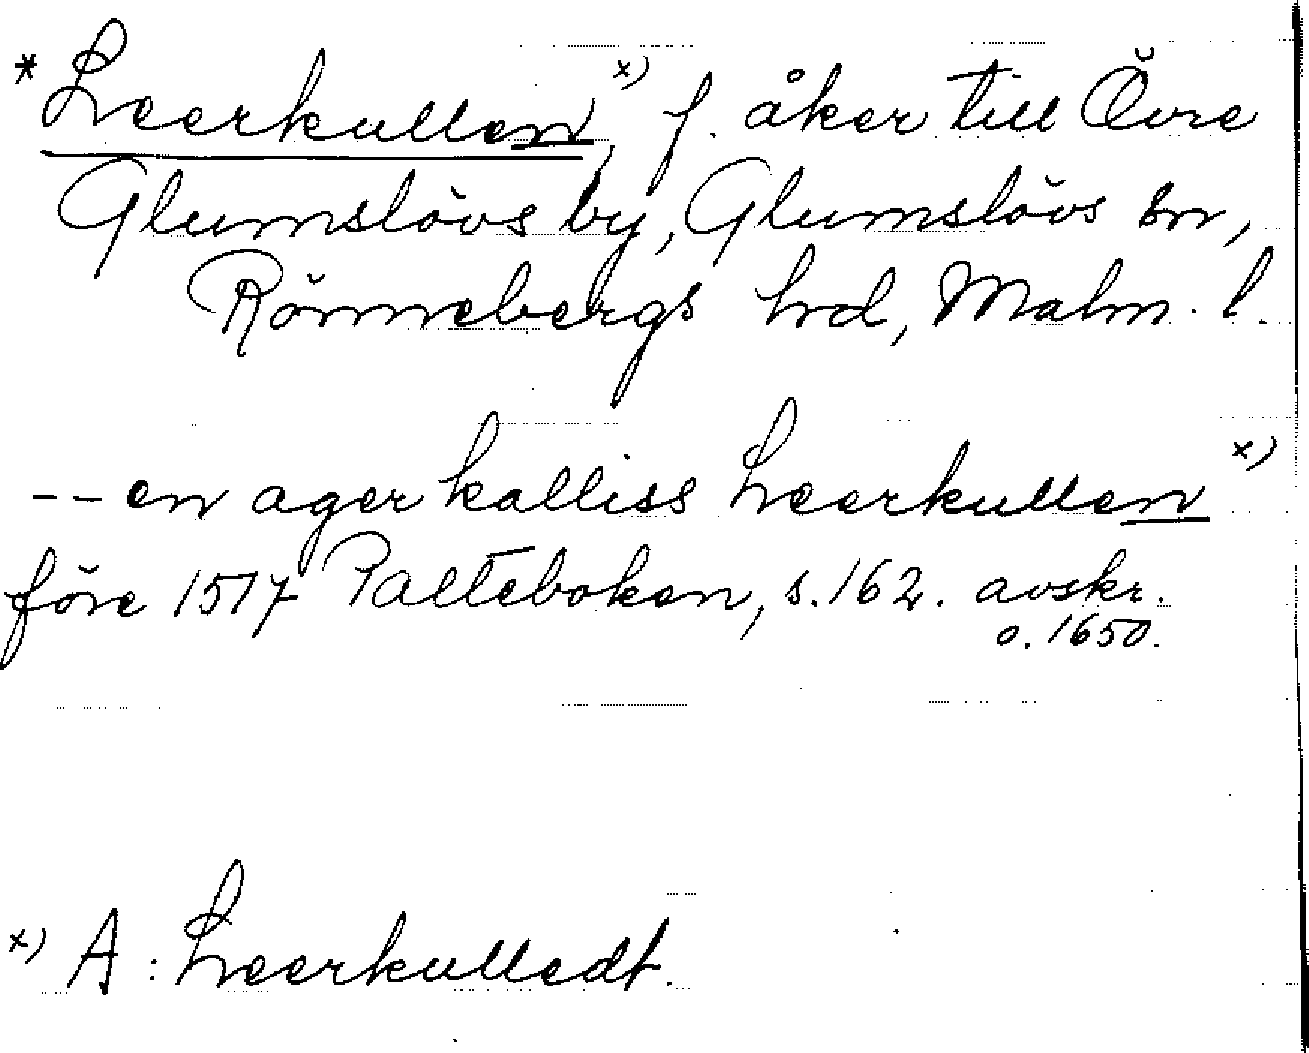 * Leerkullen, x) f. åker till Övre
Glumslövs by, Glumslövs sn,
Rönnebergs hrd, Malm. l.
-- en ager kalliss Leerkullen x)
före 1517 Palteboken, s. 162. avskr.
o. 1650.
x) A: Leerkulledt.